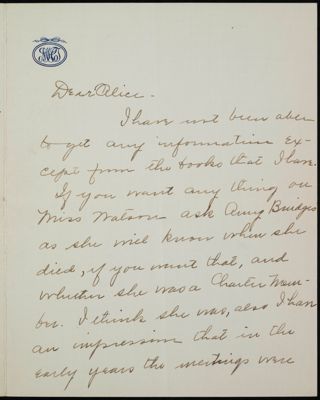 Dear Alice.
I have not been able
to get any information ex-
cept from the books that I have.
If you want any thing on
Miss Watson ask Amy Bridges
as she will know when she
died, if you want that, and
whether she was a Charter Mem-
ber. I think she was, also I have
an impression that in the
early years the meetings were